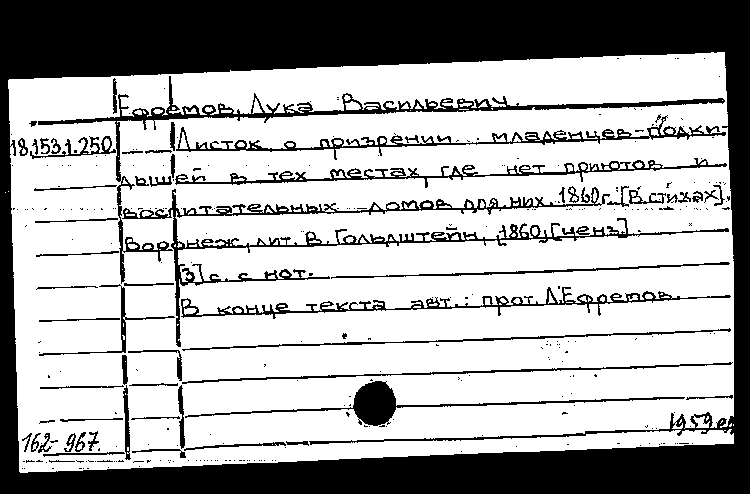 Ефремов, Лука Васильевич.
18.153.1.250. Листок о призрении младенцев-подки-
дышей в тех местах, где нет приютов и
воспитательных домов для них. 1860 г. [В стихах].
Воронеж, лит. В. Гольдштейн, [1860, [ценз].
[3] с. с нот.
В конце текста авт.: прот. Л. Ефремов.
162-967.